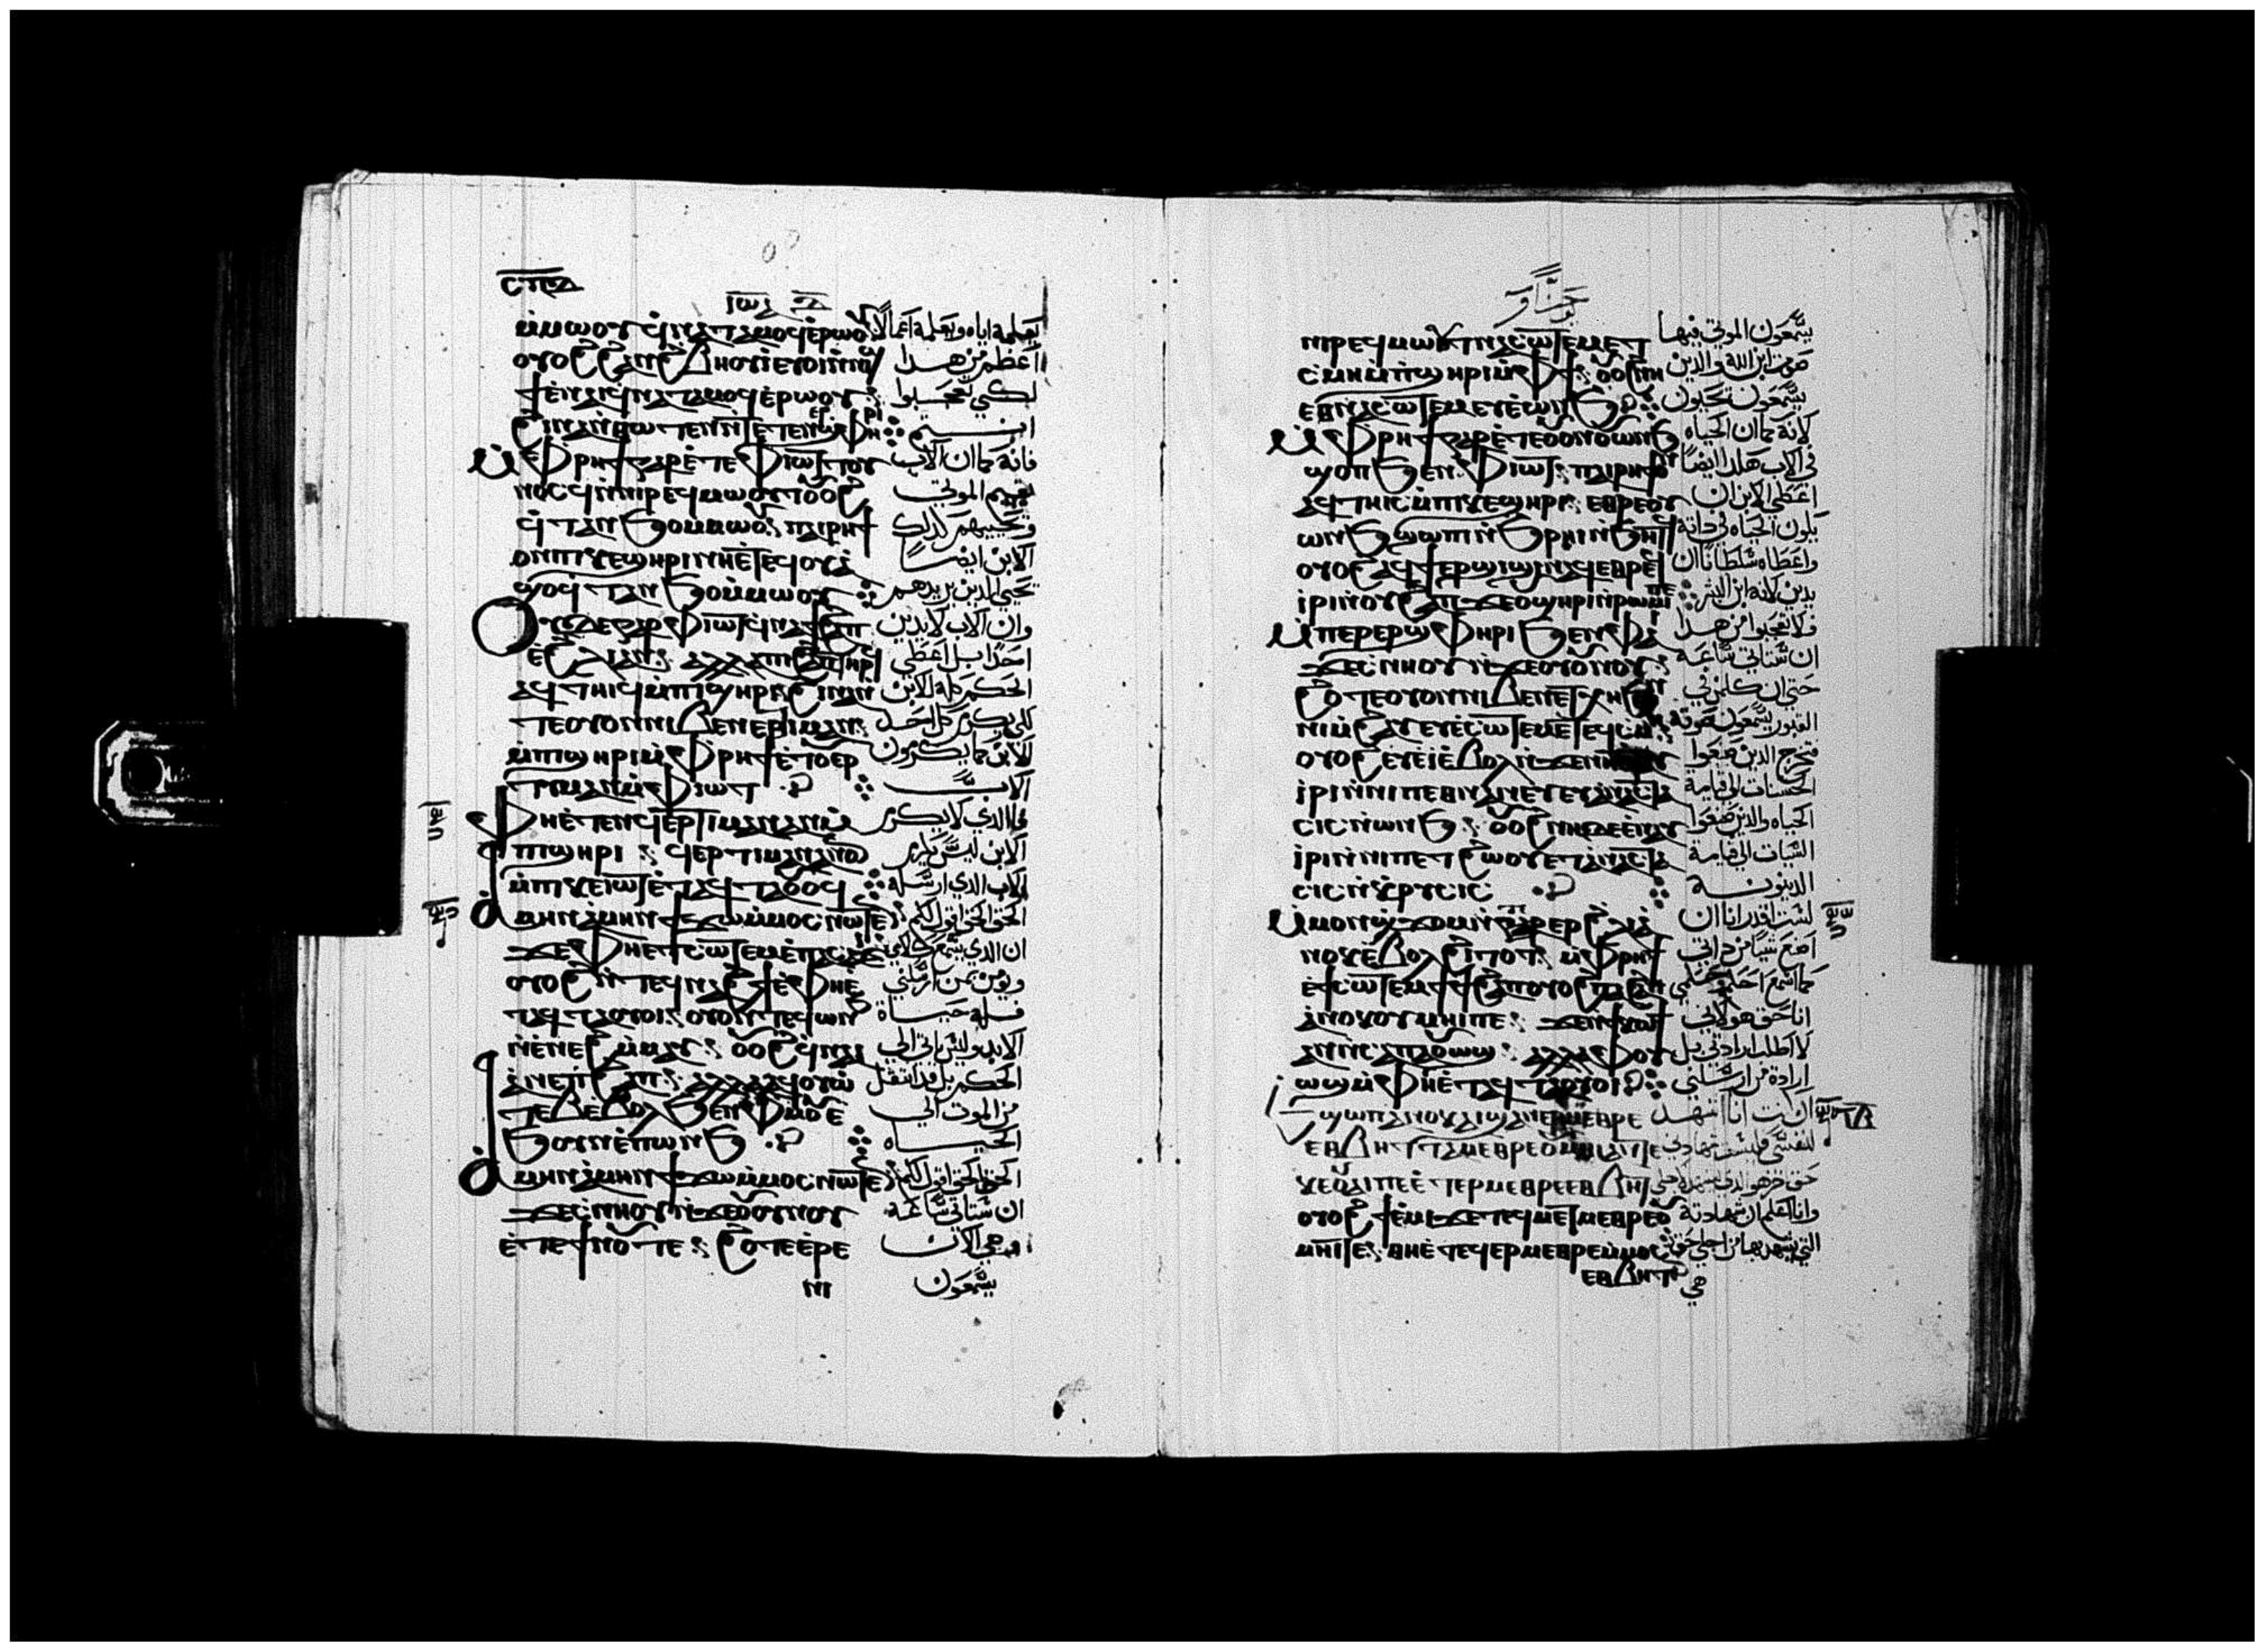 ⲓⲱⲁ
ⲙⲙⲱⲟⲩ ϥⲛⲁⲧⲁⲙⲟϥ ⲉⲣⲱⲟⲩ يعلمه اياه ويعلمه اعمالا
ⲟⲩⲟϩ ϩⲁⲛϩⲃⲏⲟⲩⲓ ⲉⲩⲟⲓ ⲛⲛⲓϣ اعظم من هدا
ϯ ⲉⲛⲁⲓ ϥⲛⲁⲧⲁⲙⲟϥ ⲉⲣⲱⲟⲩ لكي تعجبوا
ϩⲓⲛⲁ ⲛⲑⲱⲧⲉⲛ ⲛⲧⲉⲧⲉⲛⲉⲣϣⲫⲏⲣⲓ انتم
ⲙⲫⲣⲏϯ ⲅⲁⲣ ⲉⲧⲉ ⲫⲓⲱⲧ ⲧⲟⲩ فانه كما ان الاب
ⲛⲟⲥ ⲛⲛⲓⲣⲉϥⲙⲱⲟⲩⲧ ⲟⲩⲟϩ يقيم الموتى
ϥⲧⲁⲛϧⲟ ⲙⲙⲱⲟⲩ ⲡⲁⲓⲣⲏϯ ويحييهم كدلك
ⲟⲛ ⲡⲕⲉϣⲏⲣⲓ ⲛⲏ ⲉⲧⲉϥⲟⲩⲁ الابن ايضا
ϣⲟⲩ ϥⲧⲁⲛϧⲟ ⲙⲙⲱⲟⲩ يحيي الدين يريدهم
ⲟⲩⲇⲉ ⲅⲁⲣ ⲫⲓⲱⲧ ϥⲛⲁϯϩⲁⲡ وان الاب لا يدين
ⲉϩⲗⲓ ⲁⲛ ⲁⲗⲗⲁ ⲡⲓϩⲁⲡ ⲧⲏⲣϥ احدا بل اعطى
ⲁϥⲧⲏⲓϥ ⲙⲡⲓϣⲏⲣⲓ ϩⲓⲛⲁ ⲛ الحكم كله للابن
ⲧⲉ ⲟⲩⲟⲛ ⲛⲓⲃⲉⲛ ⲉⲣⲧⲓⲙⲁⲛ لكي يكرم كل احد
ⲙⲡϣⲏⲣⲓ ⲙⲫⲣⲏϯ ⲉⲧⲟⲩⲉⲣ للابن كما يكرمون
ⲧⲓⲙⲁⲛ ⲙⲫⲓⲱⲧ الاب
ⲫⲏ ⲉⲧⲉⲛϥⲉⲣⲧⲓⲙⲁⲛ ⲁⲛ ⲙ فالدي لا يكرم
ⲡϣⲏⲣⲓ ϥⲉⲣⲧⲓⲙⲁⲛ ⲁⲛ الابن ليس يكرم
ⲙⲡⲕⲉⲓⲱⲧ ⲉⲧⲁϥⲧⲁⲟⲩⲟϥ الاب الدي ارسله
ⲁⲙⲏⲛ ⲁⲙⲏⲛ ϯϫⲱ ⲙⲙⲟⲥ ⲛⲱⲧⲉⲛ الحق الحق اقول لكم
ϫⲉ ⲫⲏ ⲉⲧⲥⲱⲧⲉⲙ ⲉⲡⲁⲥⲁϫⲓ ان الدي يسمع كلامي
ⲟⲩⲟϩ ⲛⲧⲉϥⲛⲁϩϯ ⲉⲫⲏ ⲉ ويومن بمن ارسلني
ⲧⲁϥⲧⲁⲟⲩⲟⲓ ⲟⲩⲟⲛⲧⲉϥ ⲱⲛϧ فله حياة
ⲛⲉⲛⲉϩ ⲙⲙⲁⲩ ⲟⲩⲟϩ ϥⲛⲁⲓ الابد وليس ياتي الى
ⲁⲛ ⲉⲡϩⲁⲡ ⲁⲗⲗⲁ ⲁϥⲟⲩⲱ الحكم بل قد انتقل
ⲧⲉⲃ ⲉⲃⲟⲗ ϧⲉⲛ ⲫⲙⲟⲩ ⲉ من الموت الى
ϧⲟⲩⲛ ⲉⲡⲱⲛϧ الحياه
ⲁⲙⲏⲛ ⲁⲙⲏⲛ ϯϫⲱ ⲙⲙⲟⲥ ⲛⲱⲧⲉⲛ الحق الحق اقول لكم
ϫⲉ ⲥⲛⲏⲟⲩ ⲛϫⲉ ⲟⲩⲟⲩⲛⲟⲩ ان ستاتي ساعه
ⲉⲧⲉ ϯⲛⲟⲩ ⲧⲉ ϩⲟⲧⲉ ⲉⲣⲉ وهي الان
ⲛⲓ يسمعون
يوحنا
ⲛⲓⲣⲉϥⲙⲱⲟⲩⲧ ⲛⲁⲥⲱⲧⲉⲙ ⲉⲧ يسمعون الموتى فيها
ⲥⲙⲏ ⲙⲡϣⲏⲣⲓ ⲙⲫϯ ⲟⲩⲟϩ ⲛⲏ صوت ابن الله والدين
ⲉⲑⲛⲁⲥⲱⲧⲉⲙ ⲉⲩⲉⲱⲛϧ يسمعون يحيون
ⲙⲫⲣⲏϯ ⲅⲁⲣ ⲉⲧⲉ ⲟⲩⲟⲛ ⲟⲩⲱⲛϧ لانه كما ان الحياه
ϣⲟⲡ ϧⲉⲛ ⲫⲓⲱⲧ ⲡⲁⲓⲣⲏϯ ⲟⲛ في الاب هكدا ايضا
ⲁϥⲧⲏⲓⲥ ⲙⲡⲕⲉϣⲏⲣⲓ ⲉⲑⲣⲉ ⲟⲩ اعطى الابن ان
ⲱⲛϧ ϣⲱⲡⲓ ⲛϧⲣⲏⲓ ⲛϧⲏⲧϥ يكون الحياه في داته
ⲟⲩⲟϩ ⲁϥϯⲉⲣϣⲓϣⲓ ⲛⲁϥ ⲉⲑⲣⲉϥ واعطاه سلطانا ان
ⲓⲣⲓ ⲛⲟⲩϩⲁⲡ ϫⲉ ⲟⲩϣⲏⲣⲓ ⲛⲣⲱⲙⲓ ⲡⲉ يدين لانه ابن البشر
ⲙⲡⲉⲣⲉⲣϣⲫⲏⲣⲓ ϧⲉⲛ ⲫⲁⲓ فلا تعجبوا من هدا
ϫⲉ ⲥⲛⲏⲟⲩ ⲛϫⲉ ⲟⲩⲟⲩⲛⲟⲩ ان ستاتي ساعه
ϩⲟⲧⲉ ⲟⲩⲟⲛ ⲛⲓⲃⲉⲛ ⲉⲧⲭⲏ ϧⲉⲛ حتى ان كل من في
ⲛⲓⲙϩⲁⲩ ⲉⲩⲉⲥⲱⲧⲉⲙ ⲉⲧⲉϥⲥⲙⲏ القبور يسمعون صوته
ⲟⲩⲟϩ ⲉⲩⲉⲓ ⲉⲃⲟⲗ ⲛϫⲉ ⲛⲏ فيخرج الدين صنعوا
ⲓⲣⲓ ⲛⲛⲓⲡⲉⲑⲛⲁⲛⲉⲩ ⲉⲩⲁⲛⲁⲥⲧⲁ الحسنات الى قيامة
ⲥⲓⲥ ⲛⲱⲛϧ ⲟⲩⲟϩ ⲛⲏ ⲇⲉ ⲉⲧⲁⲩ الحياه والدين صنعوا
ⲓⲣⲓ ⲛⲛⲓⲡⲉⲧϩⲱⲟⲩ ⲉⲩⲁⲛⲁⲥⲧⲁ السيات الى قيامة
ⲥⲓⲥ ⲛⲕⲣⲩⲥⲓⲥ الدينونه
ⲙⲙⲟⲛ ϣϫⲟⲙ ⲛⲧⲁⲉⲣ ϩⲗⲓ ⲁ لست اقدر انا ان
ⲛⲟⲕ ⲉⲃⲟⲗ ϩⲓⲧⲟⲧ ⲙⲫⲣⲏϯ اصنع شيا من داتي
ⲉϯⲥⲱⲧⲉⲙ ϯϯϩⲁⲡ ⲟⲩⲟϩ ⲡⲁϩⲁⲡ كما اسمع احكم وحكمي
ⲁⲛⲟⲕ ⲟⲩⲙⲏⲓ ⲡⲉ ϫⲉ ⲛϯⲕⲱϯ انا حق هو لاني
ⲁⲛ ⲛⲥⲁ ⲡⲁⲟⲩⲱϣ ⲁⲗⲗⲁ ⲫⲟⲩ لا اطلب ارادتي بل
ⲱϣ ⲙⲫⲏ ⲉⲧⲁϥⲧⲁⲟⲩⲟⲓ ارادة من ارسلني
ⲉϣⲱⲡ ⲁⲛⲟⲕ ⲁⲓϣⲁⲛⲉⲣⲙⲉⲑⲣⲉ ان كنت انا اشهد
ⲉⲑⲃⲏⲧ ⲧⲁⲙⲉⲧⲙⲉⲑⲣⲉ ⲟⲩⲙⲏⲓ ⲁⲛ ⲧⲉ لنفسي فليست شهادتي
ⲕⲉⲟⲩⲁⲓ ⲡⲉ ⲉⲧⲉⲣⲙⲉⲑⲣⲉ ⲉⲑⲃⲏⲧ حق اخر هو الدي يشهد لاجلي
ⲟⲩⲟϩ ϯⲉⲙⲓ ϫⲉ ⲧⲉϥⲙⲉⲧⲙⲉⲑⲣⲉ ⲟⲩ وانا اعلم ان شهادته
ⲙⲏⲓ ⲧⲉ ⲑⲏ ⲉⲧⲉϥⲉⲣⲙⲉⲑⲣⲉ ⲙⲙⲟⲥ التي يشهد بها من اجلي حق
ⲉⲑⲃⲏⲧ هي